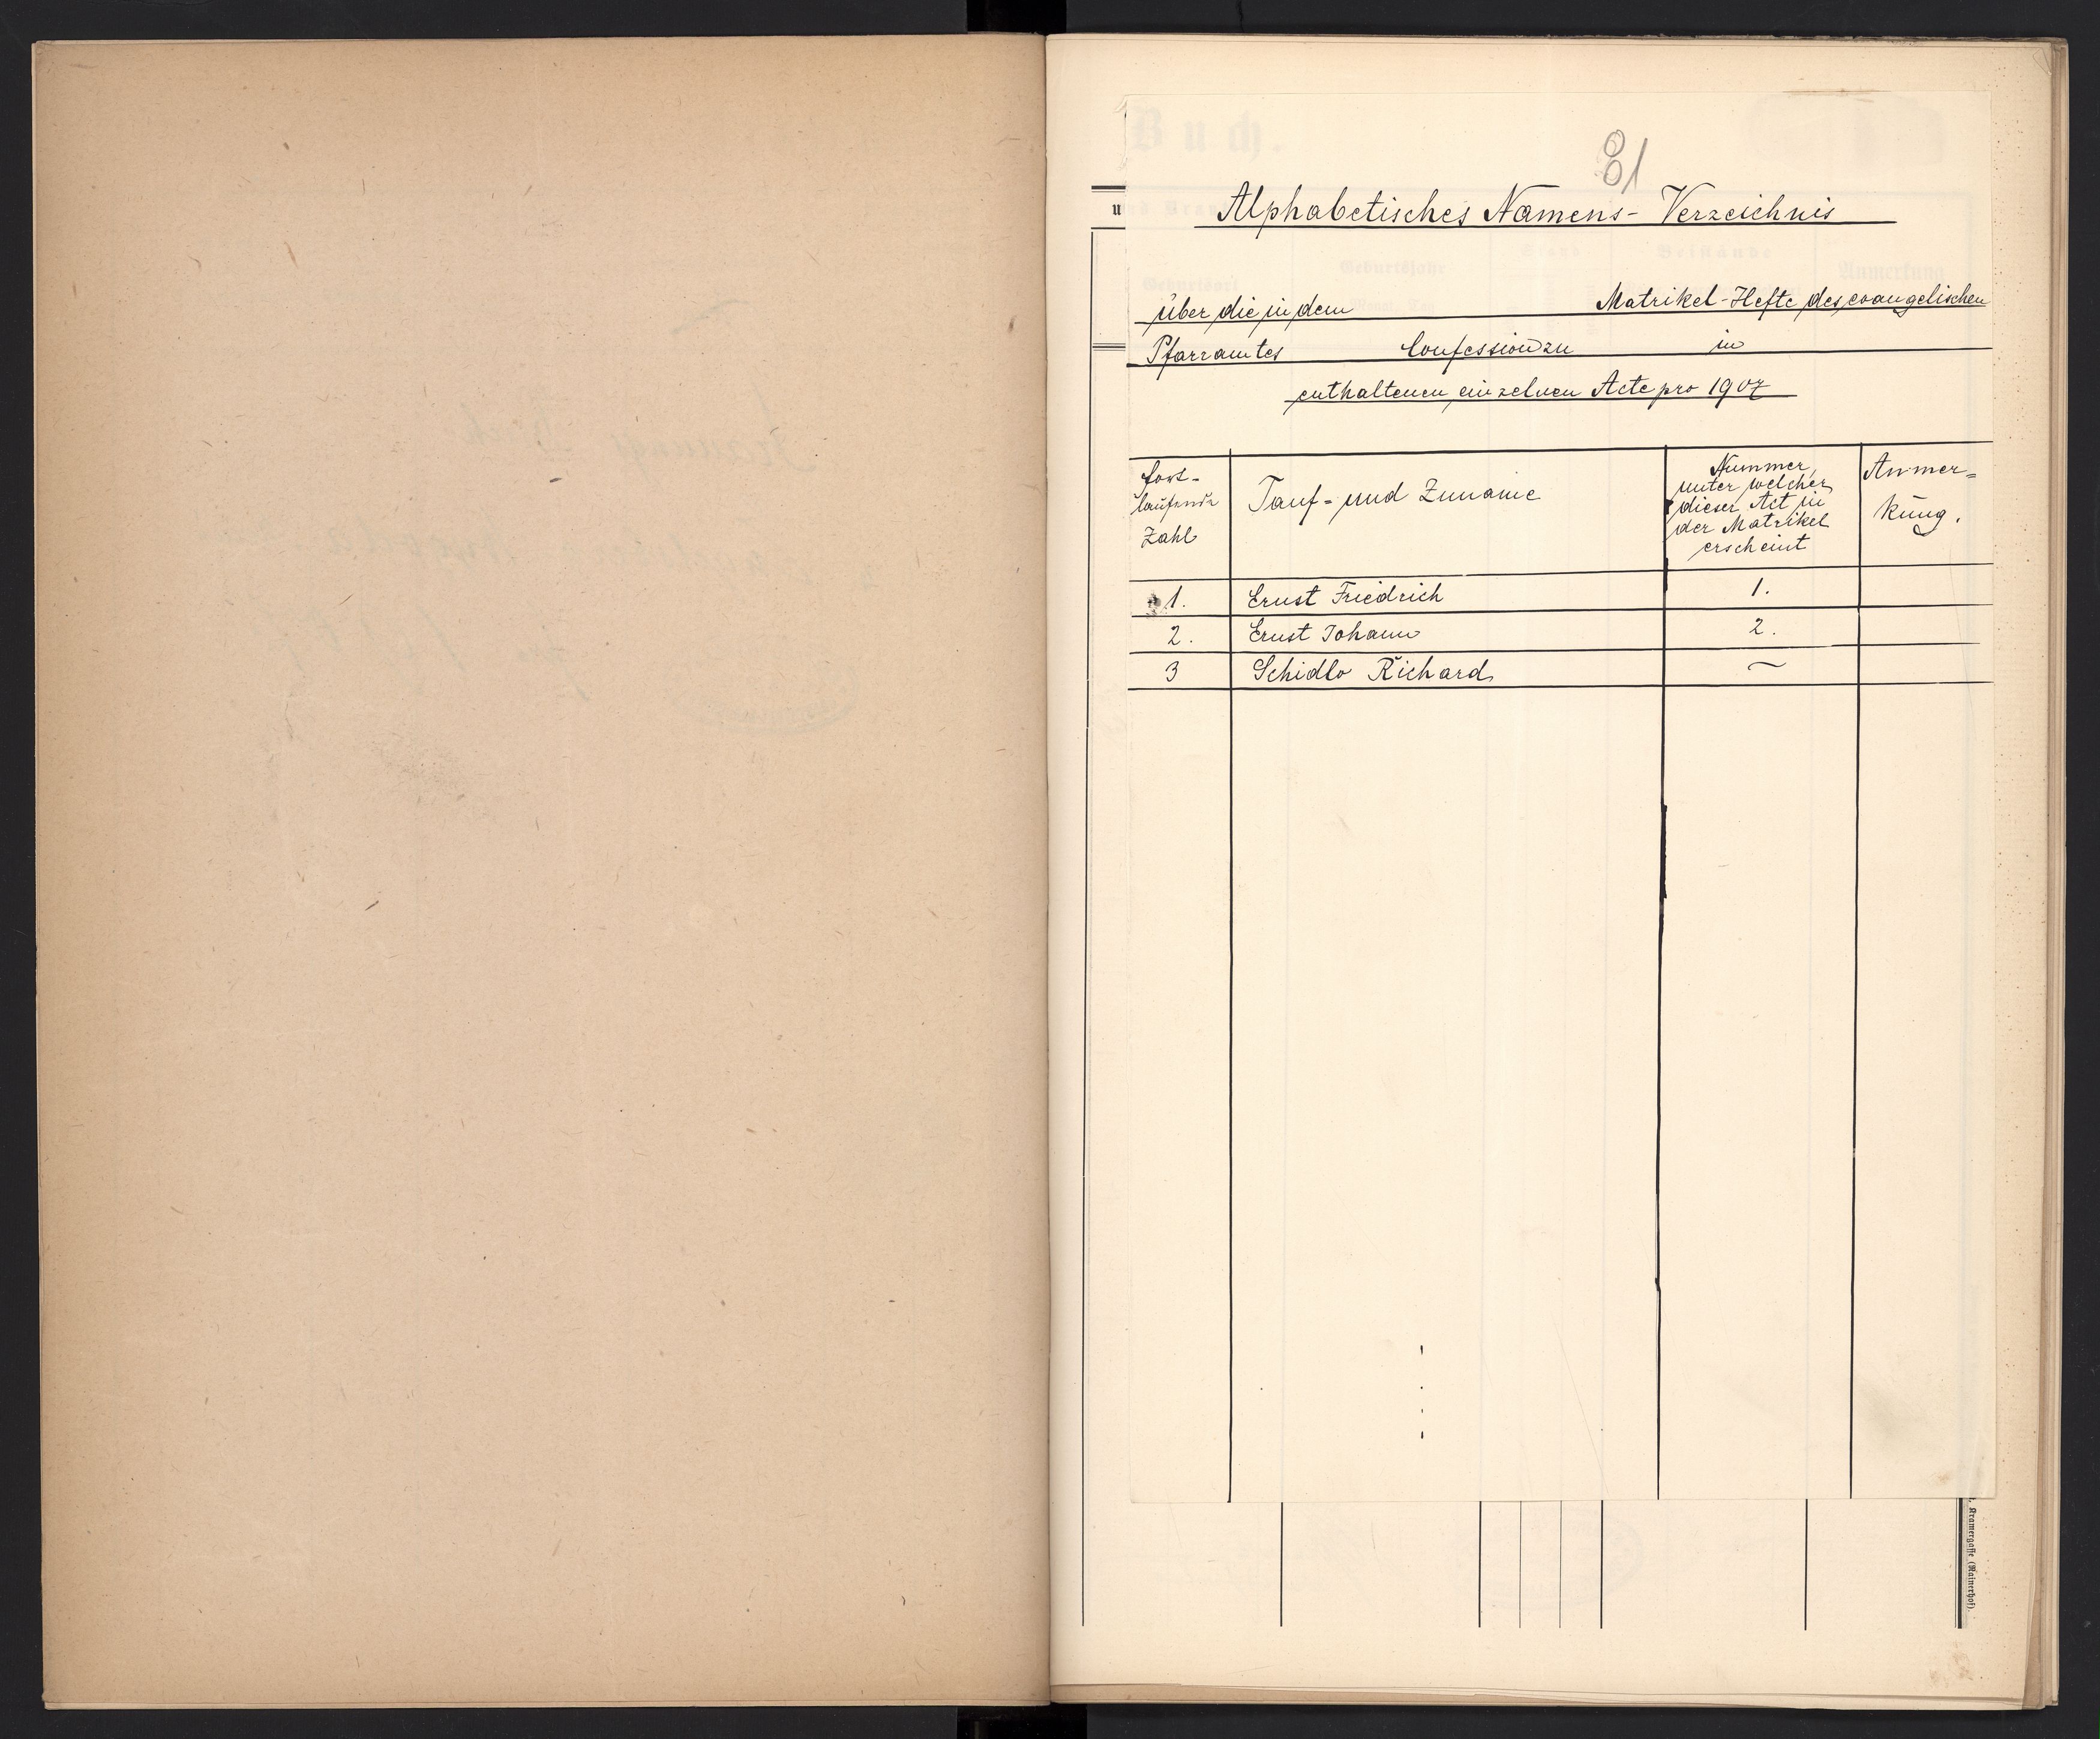 81
Alphabetisches Namens- Verzeichnis
u
über die in dem Matrikel-Hefte des evangelischen
Pfarramtes Confession zu in
enthaltenen einzelnen Acte pro 1907
fort-
laufende
Zahl
Tauf- und Zuname
Nummer,
unter welcher
dieser Act in
der Matrikel
erscheint
Anmer=
kung.
1. Ernst Friedrich 1.
2. Ernst Johann 2.
3 Schidlo Richard ~
Kramergasse (Rainerhof).